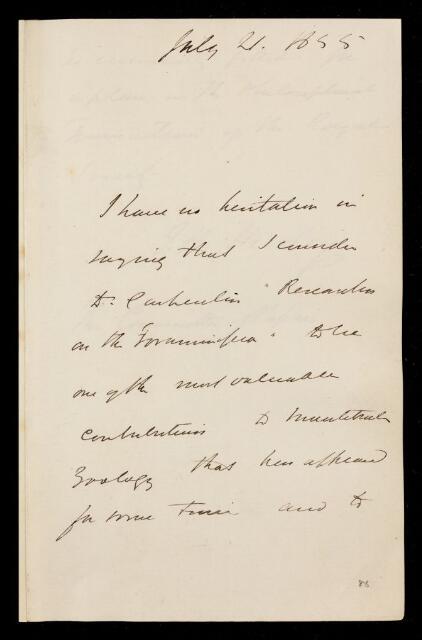 July 21. 1855
I have no hesitation in
saying that I consider
Dr. Carpenter's "Researches
on the Foraminifera" to be
one of the most valuable
contributions to Invertebrate
Zoology that has appeared
for some time and to
88